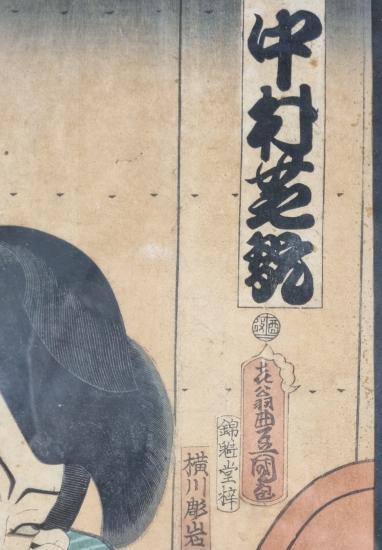 中村芝翫
酉改
花翁豊国画
錦魁堂梓
横川彫岩